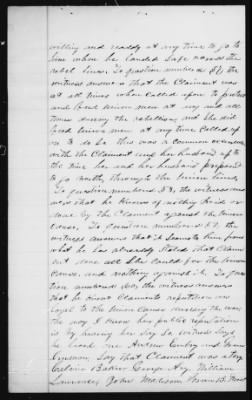 willing and ready at any time to go to
him when he landed safe across the
rebel lines. To question numbered 57, the
witness answers that the Claimant was
at all times when called upon to protect
and feed union men at any and all
times during the rebellion, and she did
feed union men at any time called up
on to do so this was a common occurrence
with the Claimant and her husband up to
the time her and her husband prepared
to go north, through the union lines.
To question numbered 58, the witness answ
ers that he knows of nothing said or
done by the Claimant against the union
cause. To question numbered 59, the
witness answers that it seems to him from
what he has already stated that Claim
ant done all she could for the union
cause and nothing against it. To ques
tion numbered 60, the witness answers
that he knows Claimants reputation was
loyal to the union cause during the war
the way I know her public reputation
is by hearing say so, witness says
he heard one Andrew
say that Claimant was a tory
Baker George William
Lawrence John